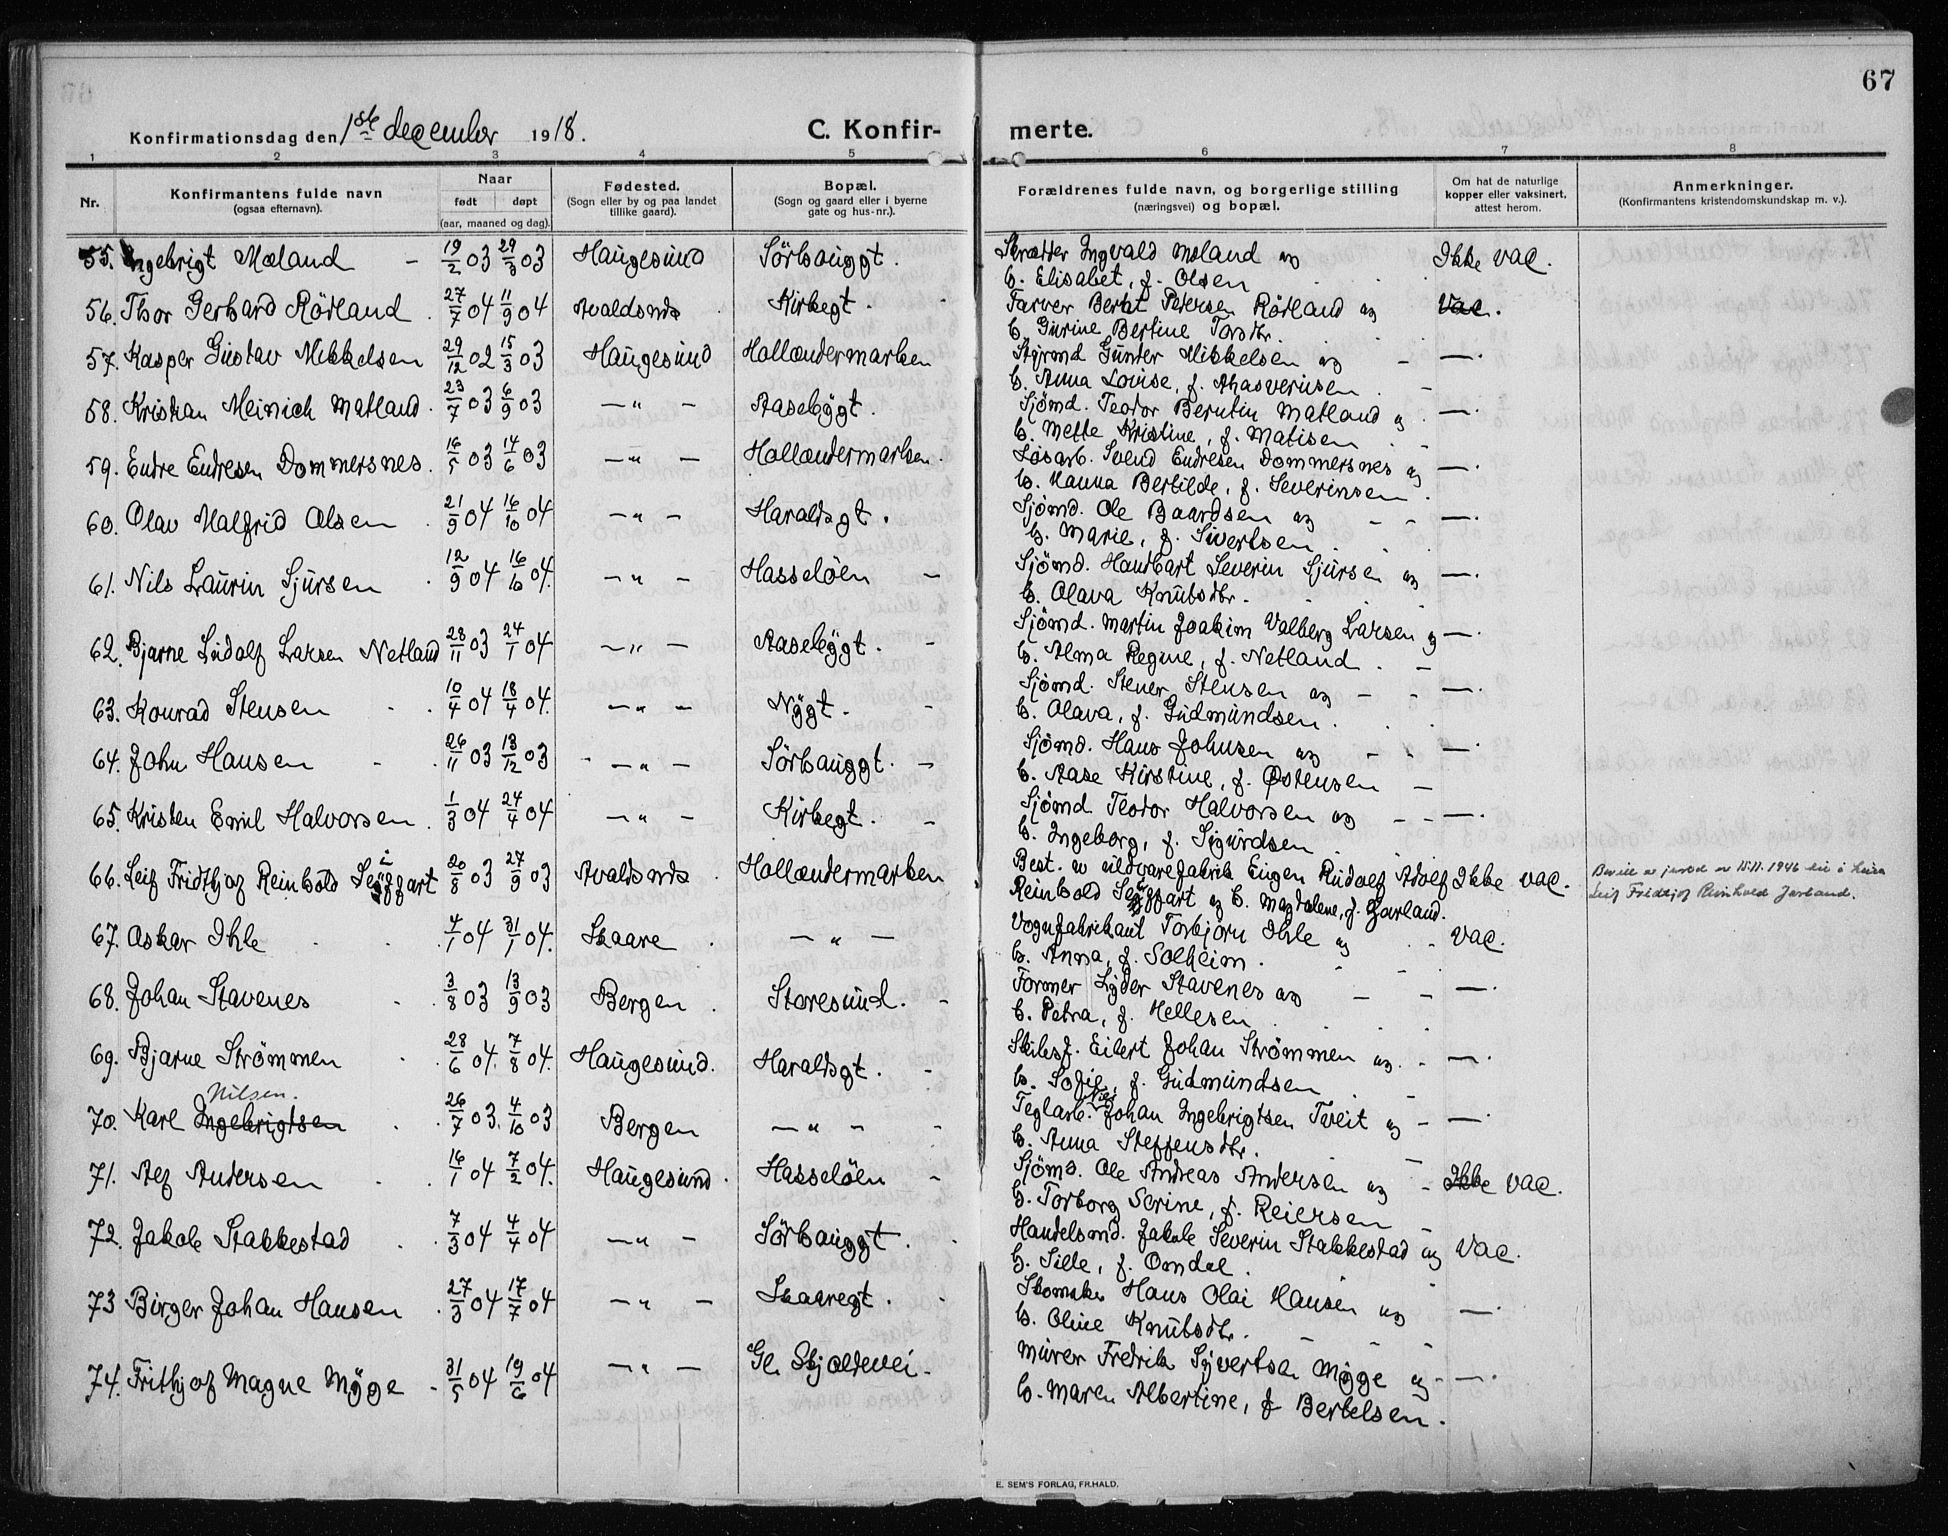 67
Konfirmationsdag den 1ste december 1918.
C. Konfir- merte.
1 2 3 4 5 6 7 8
Nr.
Konfirmantens fulde navn
(ogsaa efternavn).
Naar
født døpt
(aar, maaned og dag).
Fødested.
(Sogn eller by og paa landet
tillike gaard).
Bopæl.
(Sogn og gaard eller i byerne
gate og hus-nr.).
Forældrenes fulde navn, og borgerlige stilling
(næringsvei) og bopæl.
Om hat de naturlige
kopper eller vaksinert,
attest herom.
Anmerkninger.
(Konfirmantens kristendomskundskap m. v.).
55. Ingebrigt Mæland - 19/2 03 29/3 03 Haugesund Sörhauggt. Skrædder Ingvald Mæland og Ikke vac.
h. Elisabet, f. Olsen
56. Thor Gerhard Rötland 27/7 04 11/9 04 Avaldsnes Kirkegt. Farver Bernt Petersen Rötland og Vac.
h. Gurine Bertine Torsdtr.
57. Kasper Gustav Mikkelsen 29/12 02 15/3 03 Haugesund Hollændermarken Styrmd. Gunder Mikkelsen og - —
h. Anna Lovise, f. Ahasverusen
58. Kristian Meinich Matland 23/7 03 6/9 03 —"— Aasebygt. Sjömd. Teodor Berntin Matland og —
h. Mette Kristine, f. Matisen
59. Endre Endresen Dommersnes. 16/5 03 14/6 03 —"— Hollændermarken Løsarb. Svend Endresen Dommersnes og —
h. Hanna Bertilde, f. Severinsen
60. Olav Halfrid Olsen 21/9 04 16/10 04 —"— Haraldsgt. Sjömd. Ole Baardsen og —
h. Marie, f. Sivertsen
61. Nils Laurin Sjursen 12/9 04 16/10 04. —"— Hasselöen Sjömd. Haudbart Severin Sjursen og —
h. Olava Knutsdtr.
62. Bjarne Ludolf Larsen Netland 28/11 03 24/1 04 —"— Aasebygt. Sjömd. Martin Joakim Valberg Larsen og —
h. Alma Regine, f. Netland
63. Konrad Stensen 10/4 04 18/4 04. —"— Nygt. Sjömd. Stener Stensen og —
h. Olava, f. Gudmundsen.
64. John Hansen 26/11 03 13/12 03 —"— Sörhauggt. Sjömd. Hans Johnsen og —
h. Aase Kirstine, f. Østensen
65. Kristen Emil Halvorsen 1/3 04 24/4 04 —"— Kirkegt. Sjömd. Teodor Halvorsen og —
h. Ingeborg, f. Sigurdsen
66. Leif Fridthjof Reinhold Seiffart 20/8 03 27/9 03 Avaldsnes Hollændermarken Best. v uldvarefabrik Eugen Rudolf Adolf Ikke vac.
Reinhold Seiffart og h. Magdalene, f. Jarland.
Bevill av 15.11.1946
Leif Fridtjof Reinhold Jarland.
67. Oskar Ihle 4/1 04 31/1 04. Skaare —"— Vognfabrikant Torbjörn Ihle og Vac.
h. Anna, f. Solheim.
68. Johan Stavenes 3/8 03 13/9 03 Bergen Storesund. Former Lyder Stavenes og —
h. Petra, f. Hellesen
69. Bjarne Strömmen 28/6 04. 7/8 04. Haugesund. Haraldsgt. Skibsf. Eilert Johan Strömmen og —
h. Sofie, f. Gudmundsen
Nilsen.
70. Karl Ingebrigtsen 26/7 03. 4/10 03 Bergen —"— Teglarb. Nils Johan Ingebrigtsen Tveit og —
h. Anna Steffensdtr.
71. Alf Andersen 16/1 04 7/2 04. Haugesund. Hasselöen Sjömd. Ole Andreas Andersen og Ikke vac.
h. Torborg Serine, f. Reiersen
72. Jakob Stakkestad 7/3 04 4/4 04 —"— Sörhauggt. Handelsmd. Jakob Severin Stakkestad og Vac.
h. Sille, f. Omdal
73 Birger Johan Hansen 27/3 04 17/7 04 —"— Skaaregt. Skomaker Hans Olai Hansen og —
h. Oline Knutsdtr.
74. Frithjof Magne Myge 31/5 04 19/6 04 —"— Gl. Skjoldevei. Murer Fredrik Syvertsen Mygge og —
h. Maren Albertine, f Bertelsen.
E. SEM'S FORLAG, FR.HALD.